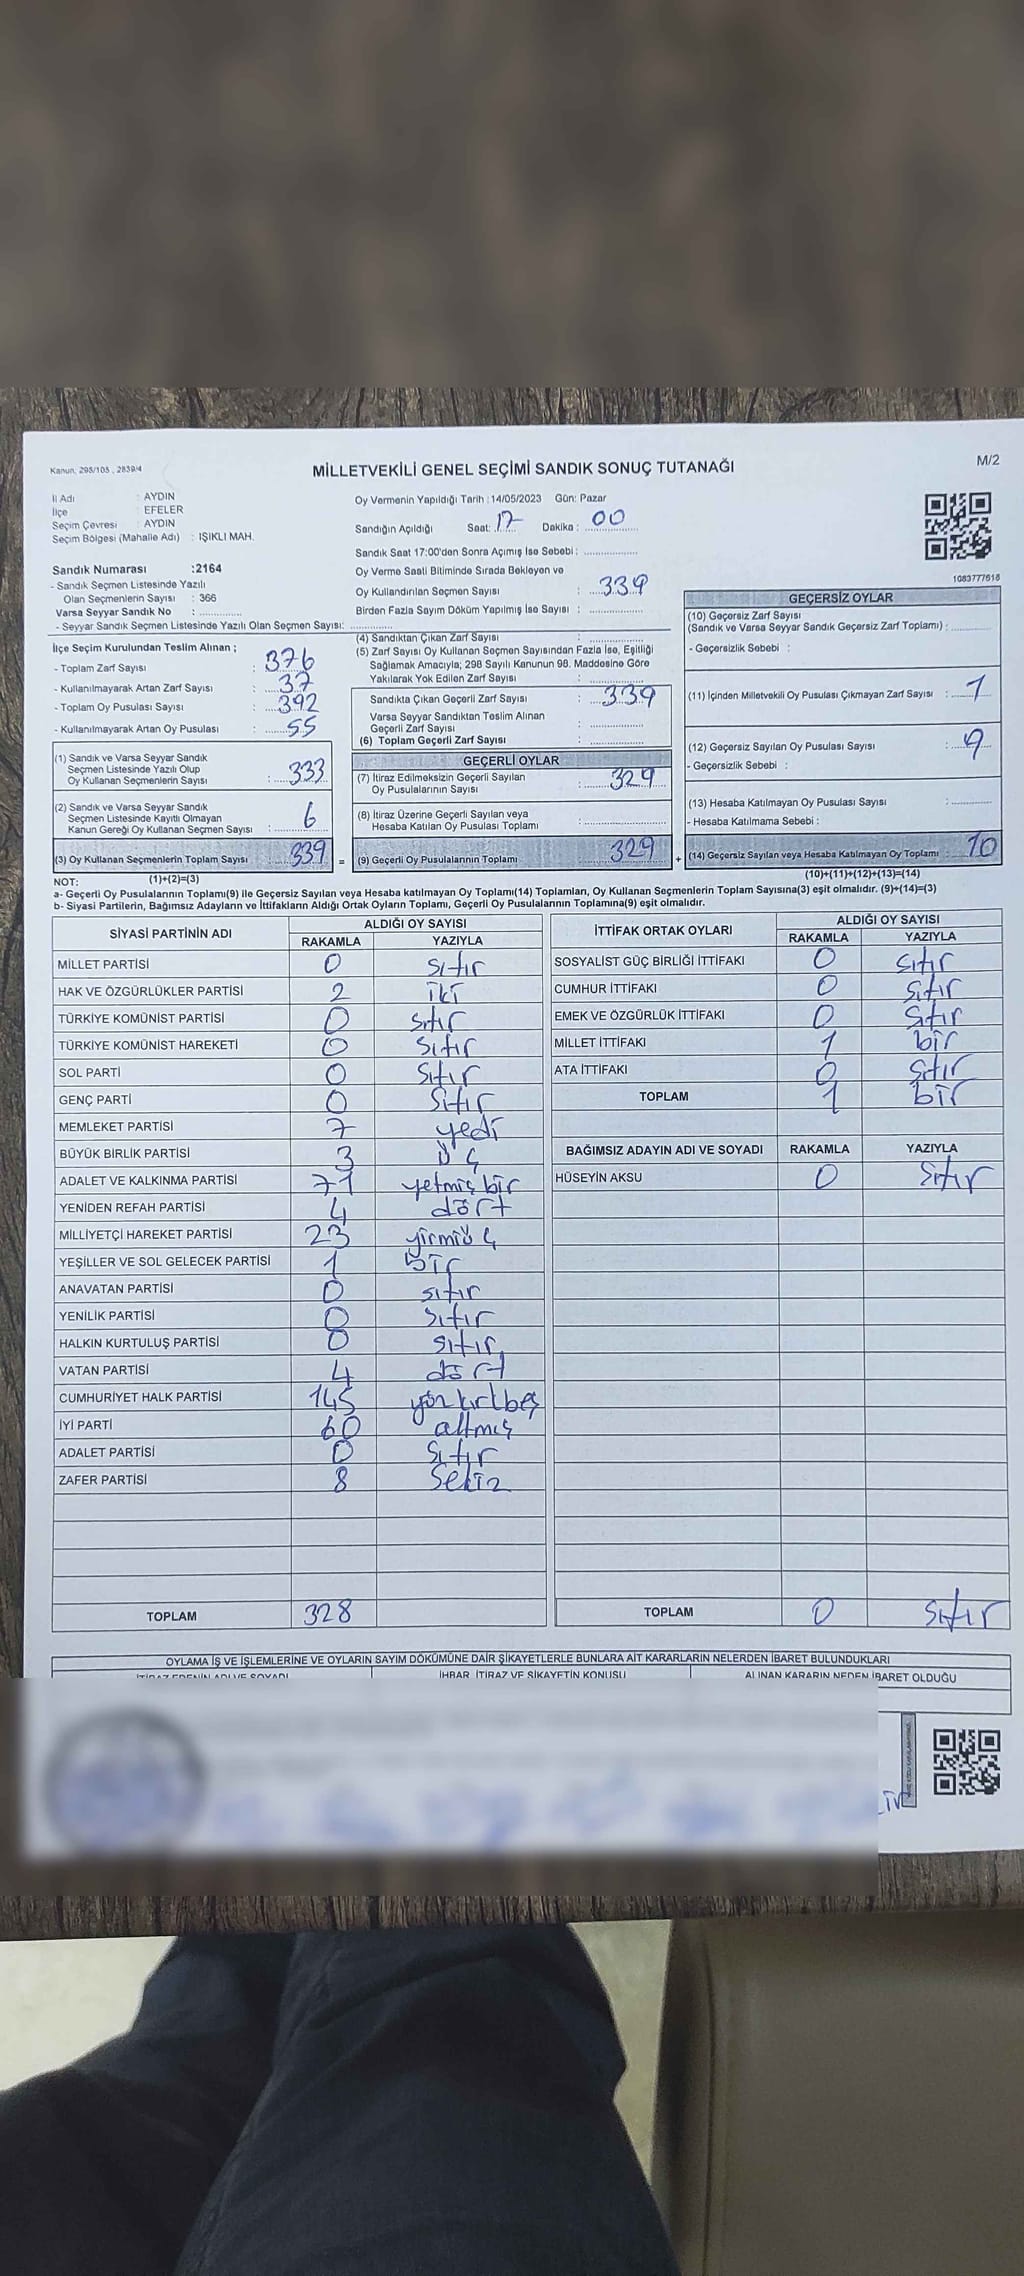 Kanun, 298/105 , 2839/4
MİLLETVEKİLİ GENEL SEÇİMİ SANDIK SONUÇ TUTANAĞI
M/2
İl Adı : AYDIN
İlçe : EFELER
Seçim Çevresi : AYDIN
Seçim Bölgesi (Mahalle Adı) : IŞIKLI MAH.
Sandık Numarası :2164
- Sandık Seçmen Listesinde Yazılı
Olan Seçmenlerin Sayısı : 366
Varsa Seyyar Sandık No : ..............
- Seyyar Sandık Seçmen Listesinde Yazılı Olan Seçmen Sayısı: ..............
Oy Vermenin Yapıldığı Tarih :14/05/2023 Gün: Pazar
Sandığın Açıldığı Saat: 17 Dakika : 00
Sandık Saat 17:00'den Sonra Açımış İse Sebebi : ..............
Oy Verme Saati Bitiminde Sırada Bekleyen ve
Oy Kullandırılan Seçmen Sayısı : 339
Birden Fazla Sayım Döküm Yapılmış İse Sayısı : ..............
1083777618
İlçe Seçim Kurulundan Teslim Alınan ;
- Toplam Zarf Sayısı : 376
- Kullanılmayarak Artan Zarf Sayısı : 37
- Toplam Oy Pusulası Sayısı : 392
- Kullanılmayarak Artan Oy Pusulası : 55
(1) Sandık ve Varsa Seyyar Sandık
Seçmen Listesinde Yazılı Olup
Oy Kullanan Seçmenlerin Sayısı : 333
(2) Sandık ve Varsa Seyyar Sandık
Seçmen Listesinde Kayıtlı Olmayan
Kanun Gereği Oy Kullanan Seçmen Sayısı : 6
(3) Oy Kullanan Seçmenlerin Toplam Sayısı : 339 =
(4) Sandıktan Çıkan Zarf Sayısı : ..............
(5) Zarf Sayısı Oy Kullanan Seçmen Sayısından Fazla İse, Eşitliği
Sağlamak Amacıyla; 298 Sayılı Kanunun 98. Maddesine Göre
Yakılarak Yok Edilen Zarf Sayısı : ..............
Sandıkta Çıkan Geçerli Zarf Sayısı : 339
Varsa Seyyar Sandıktan Teslim Alınan
Geçerli Zarf Sayısı : ..............
(6) Toplam Geçerli Zarf Sayısı : ..............
GEÇERLİ OYLAR
(7) İtiraz Edilmeksizin Geçerli Sayılan
Oy Pusulalarının Sayısı : 329
(8) İtiraz Üzerine Geçerli Sayılan veya
Hesaba Katılan Oy Pusulası Toplamı : ..............
(9) Geçerli Oy Pusulalarının Toplamı : 329 +
GEÇERSİZ OYLAR
(10) Geçersiz Zarf Sayısı
(Sandık ve Varsa Seyyar Sandık Geçersiz Zarf Toplamı) : ..............
- Geçersizlik Sebebi :
(11) İçinden Milletvekili Oy Pusulası Çıkmayan Zarf Sayısı : 1
(12) Geçersiz Sayılan Oy Pusulası Sayısı : 9
- Geçersizlik Sebebi :
(13) Hesaba Katılmayan Oy Pusulası Sayısı : ..............
- Hesaba Katılmama Sebebi :
(14) Geçersiz Sayılan veya Hesaba Katılmayan Oy Toplamı : 10
NOT: (1)+(2)=(3) (10)+(11)+(12)+(13)=(14)
a- Geçerli Oy Pusulalarının Toplamı(9) ile Geçersiz Sayılan veya Hesaba katılmayan Oy Toplamı(14) Toplamları, Oy Kullanan Seçmenlerin Toplam Sayısına(3) eşit olmalıdır. (9)+(14)=(3)
b- Siyasi Partilerin, Bağımsız Adayların ve İttifakların Aldığı Ortak Oyların Toplamı, Geçerli Oy Pusulalarının Toplamına(9) eşit olmalıdır.
SİYASİ PARTİNİN ADI ALDIĞI OY SAYISI
RAKAMLA YAZIYLA
MİLLET PARTİSİ 0 sıfır
HAK VE ÖZGÜRLÜKLER PARTİSİ 2 iki
TÜRKİYE KOMÜNİST PARTİSİ 0 sıfır
TÜRKİYE KOMÜNİST HAREKETİ 0 sıfır
SOL PARTİ 0 sıfır
GENÇ PARTİ 0 sıfır
MEMLEKET PARTİSİ 7 yedi
BÜYÜK BİRLİK PARTİSİ 3 üç
ADALET VE KALKINMA PARTİSİ 71 yetmiş bir
YENİDEN REFAH PARTİSİ 4 dört
MİLLİYETÇİ HAREKET PARTİSİ 23 yirmiüç
YEŞİLLER VE SOL GELECEK PARTİSİ 1 bir
ANAVATAN PARTİSİ 0 sıfır
YENİLİK PARTİSİ 0 sıfır
HALKIN KURTULUŞ PARTİSİ 0 sıfır
VATAN PARTİSİ 4 dört
CUMHURİYET HALK PARTİSİ 145 yüz kırkbeş
İYİ PARTİ 60 altmış
ADALET PARTİSİ 0 sıfır
ZAFER PARTİSİ 8 Sekiz
TOPLAM 328
İTTİFAK ORTAK OYLARI ALDIĞI OY SAYISI
RAKAMLA YAZIYLA
SOSYALİST GÜÇ BİRLİĞİ İTTİFAKI 0 sıfır
CUMHUR İTTİFAKI 0 sıfır
EMEK VE ÖZGÜRLÜK İTTİFAKI 0 sıfır
MİLLET İTTİFAKI 1 bir
ATA İTTİFAKI 0 sıfır
TOPLAM 1 bir
BAĞIMSIZ ADAYIN ADI VE SOYADI RAKAMLA YAZIYLA
HÜSEYİN AKSU 0 sıfır
TOPLAM 0 sıfır
OYLAMA İŞ VE İŞLEMLERİNE VE OYLARIN SAYIM DÖKÜMÜNE DAİR ŞİKAYETLERLE BUNLARA AİT KARARLARIN NELERDEN İBARET BULUNDUKLARI
İTİRAZ EDENİN ADI VE SOYADI İHBAR, İTİRAZ VE ŞİKAYETİN KONUSU ALINAN KARARIN NEDEN İBARET OLDUĞU